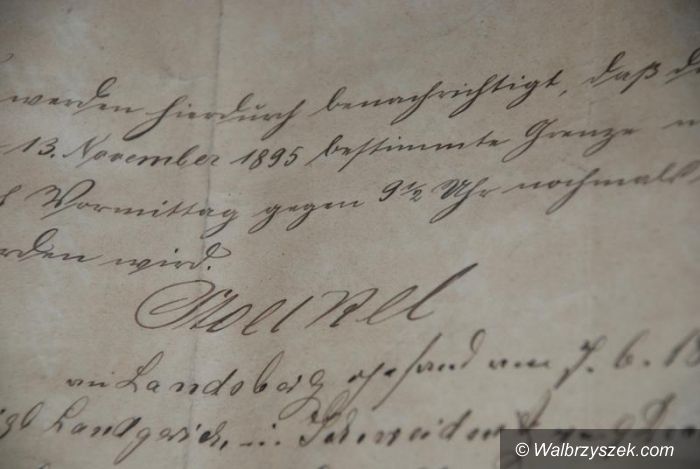 werden hierdurch benachrichtigt, daß
13. November 1895 bestimmte Grenze
Vormittag gegen 9 1/2 Uhr nochmals
rden wird.
an Landsberg gesand am 7. 6. 18
Landgerich, in Schweidnitz
© Walbrzyszek.com